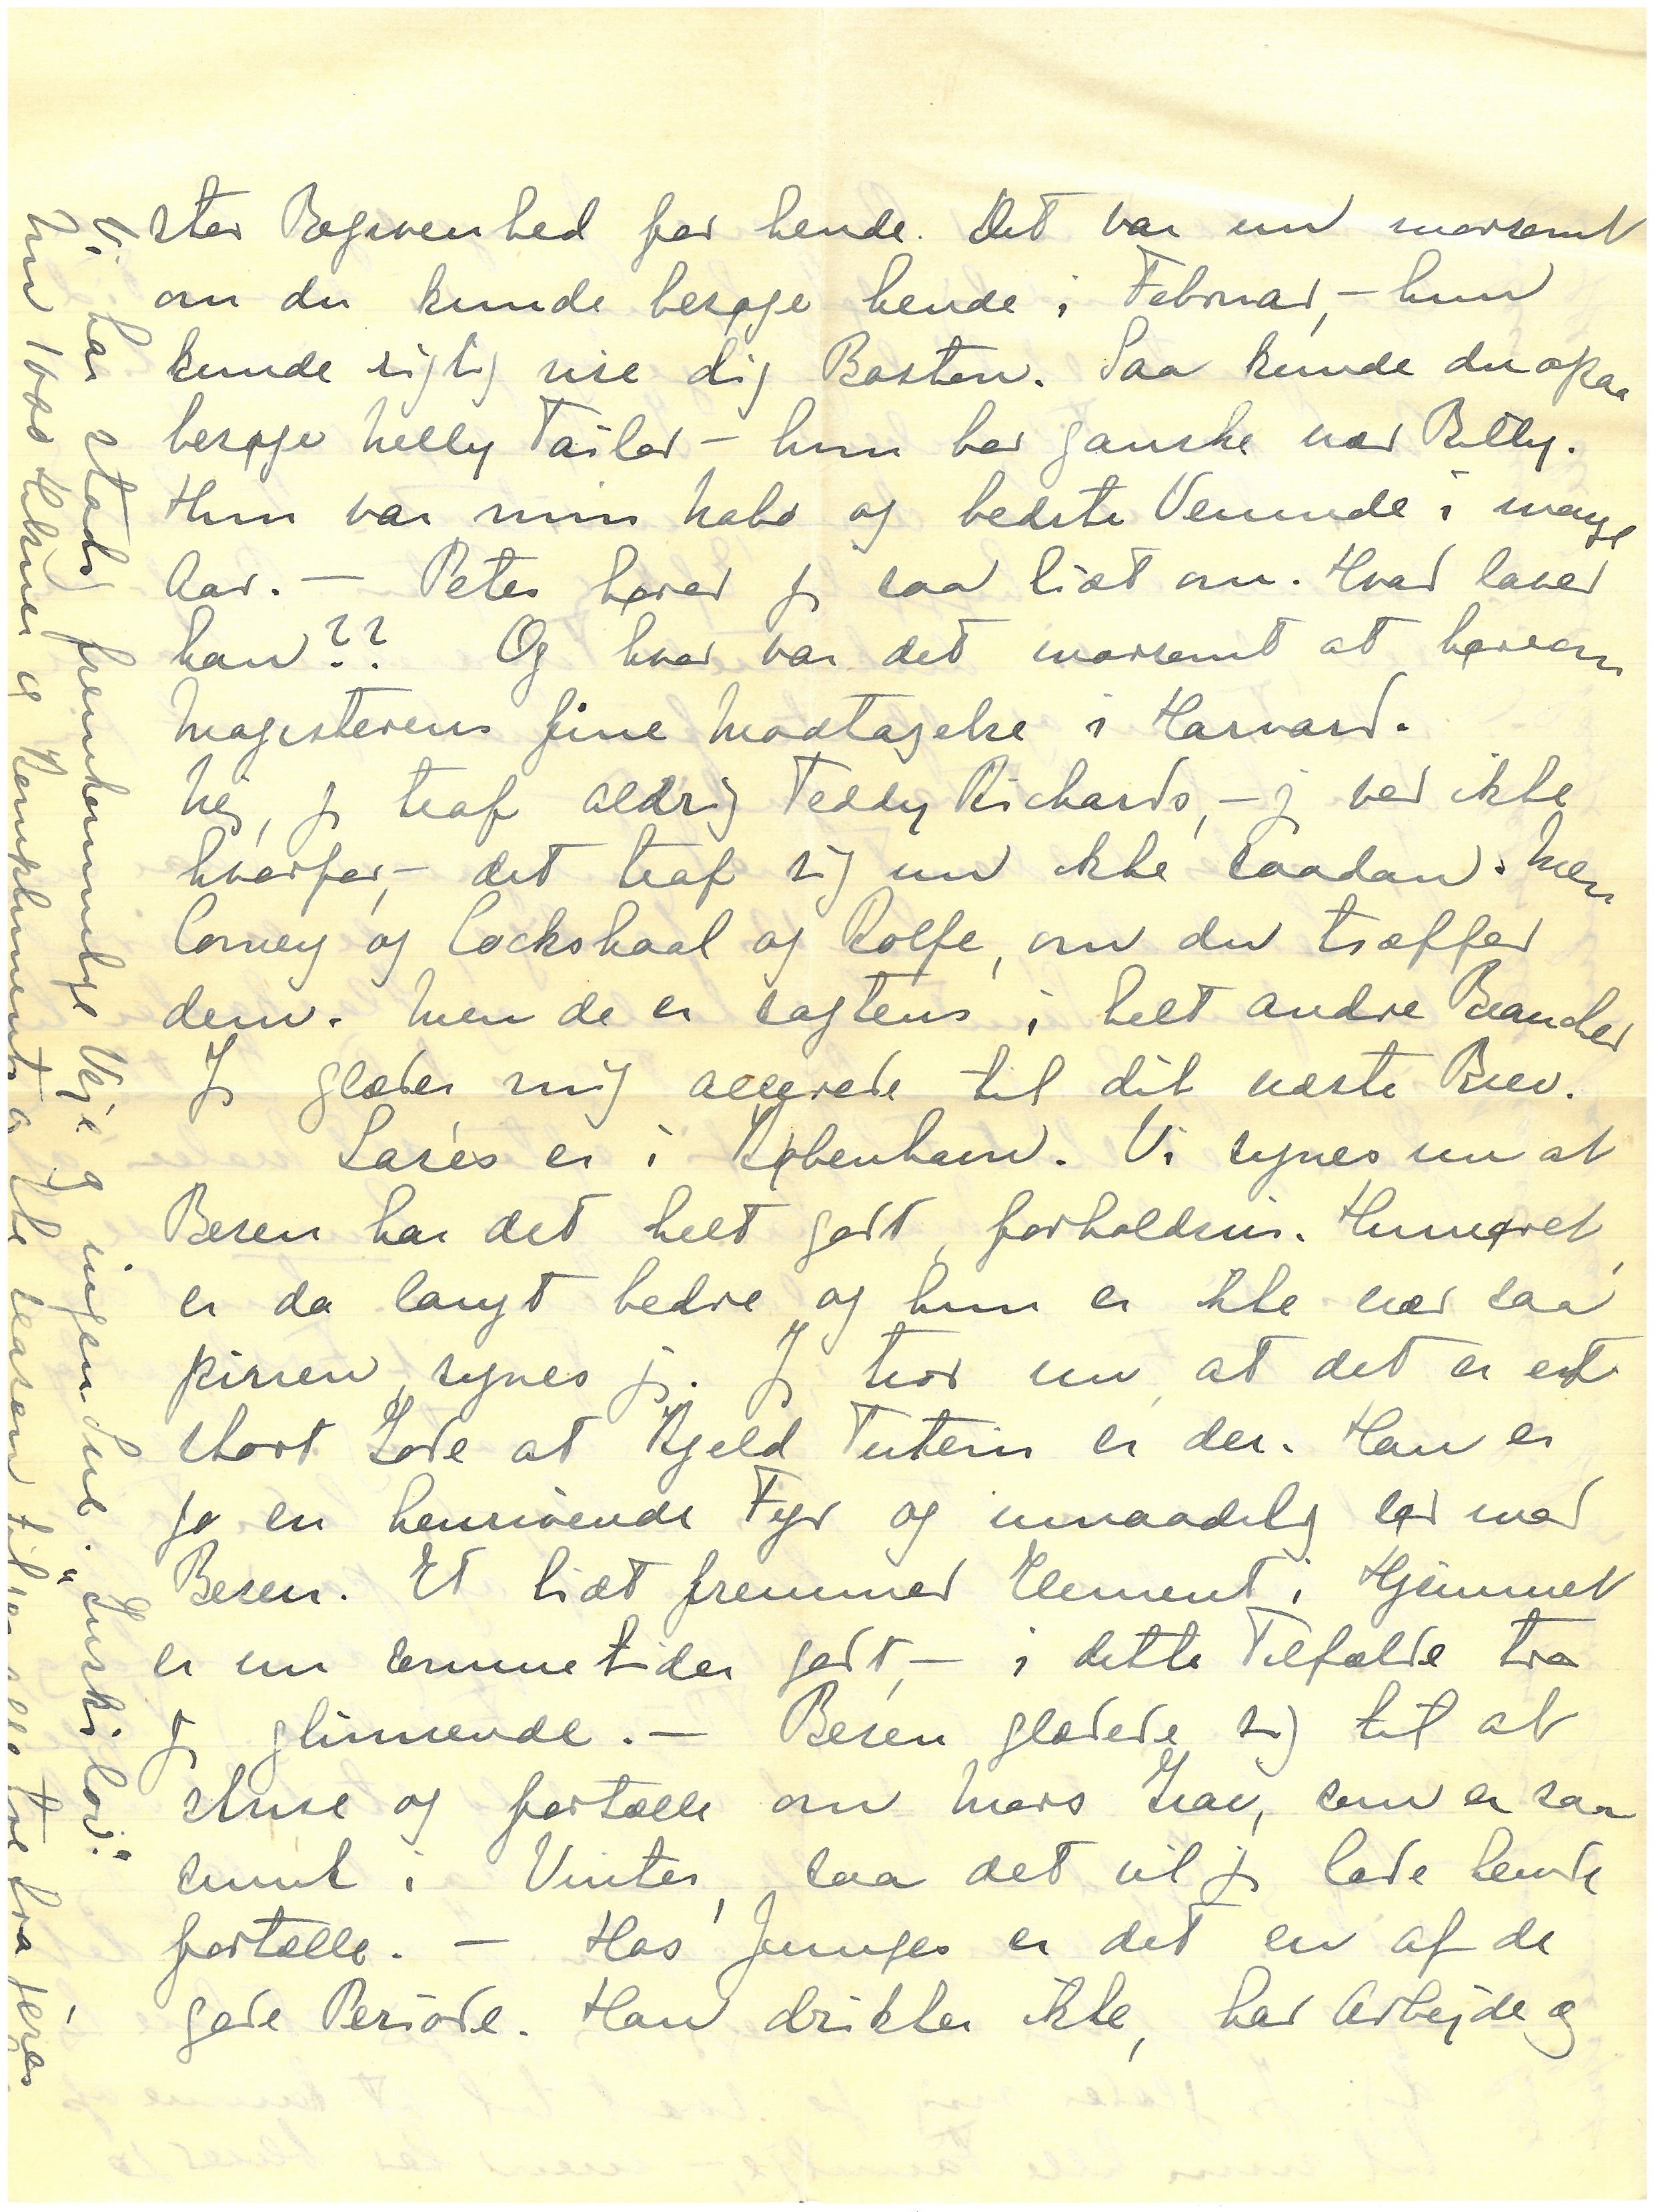 stor Begivenhed for hende. Det var nu morsomt
om du kunde besøge hende i Februar, – hun
kunde rigtig vise dig Boston. Saa kunde du ogsaa
besøge Nelly Tailor – hun bor ganske nær Betty.
Hun var min Nabo og bedste Veninde i mange
Aar. – Peter hører jeg saa lidt om. Hvad laver
han?? Og hvor var det morsomt at høre om
Magisterens fine Modtagelse i Harvard.
Nej, jeg traf aldrig Teddy Richards, – jeg ved ikke
hvorfor, – det traf sig nu ikke saadan. Men
Corney og Lockshaal og Rolfe, om du træffer
dem. Men de er sagtens i helt andre Brancher
Jeg glæder mig allerede til dit næste Brev.
Lasses er i København. Vi synes nu at
Besen har det helt godt, forholdsvis. Humøret
er da langt bedre og hun er ikke nær saa
pirren, synes jeg. Jeg tror nu at det er et
stort Gode at Kjeld Tutein er der. Han er
jo en henrivende Fyr og umaadelig sød mod
Besen. Et lidt fremmed Element i Hjemmet
er nu sommetider godt, – i dette Tilfælde tror
jeg glimrende. – Besen glædede sig til at
skrive og fortælle om Mors Grav, som er saa
smuk i Vinter, saa det vil jeg lade hende
fortælle. – Hos Junges er det en af de
gode Periode. Han drikker ikke, har Arbejde og
Vi har stadig fremkommelige Veje og ingen Sne. "Luskilov."
Nu 1000 Hilsner og Komplimenter ikke saasom til jer alle tre fra jeres